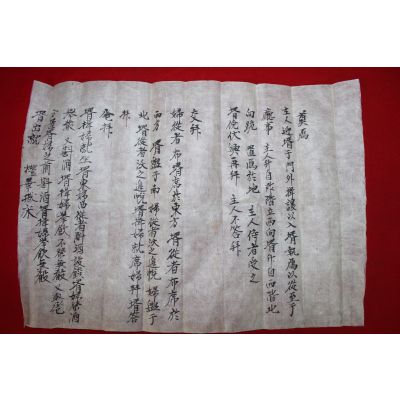 奠鴈
主人迎壻于門外揖讓以入壻執鴈以從至于
廳事 主人升自阼階立西向壻升自西階北
向跪 置鴈於地 主人侍者受之
壻俛伏興再拜 主人不答拜
交拜
婦從者布壻席於東方 壻從者布席於
西方 壻盥于南 婦從者沃之進帨 婦盥于
北 壻從者沃之進帨壻揖婦就席婦拜壻答
拜
拜
壻揖婦就坐壻東婦從者斟酒設饌壻婦祭酒
擧殽 又斟酒壻揖婦擧飮不祭無殽 又取巹
分置壻婦之前斟酒壻揖婦擧飮無殽
壻出就